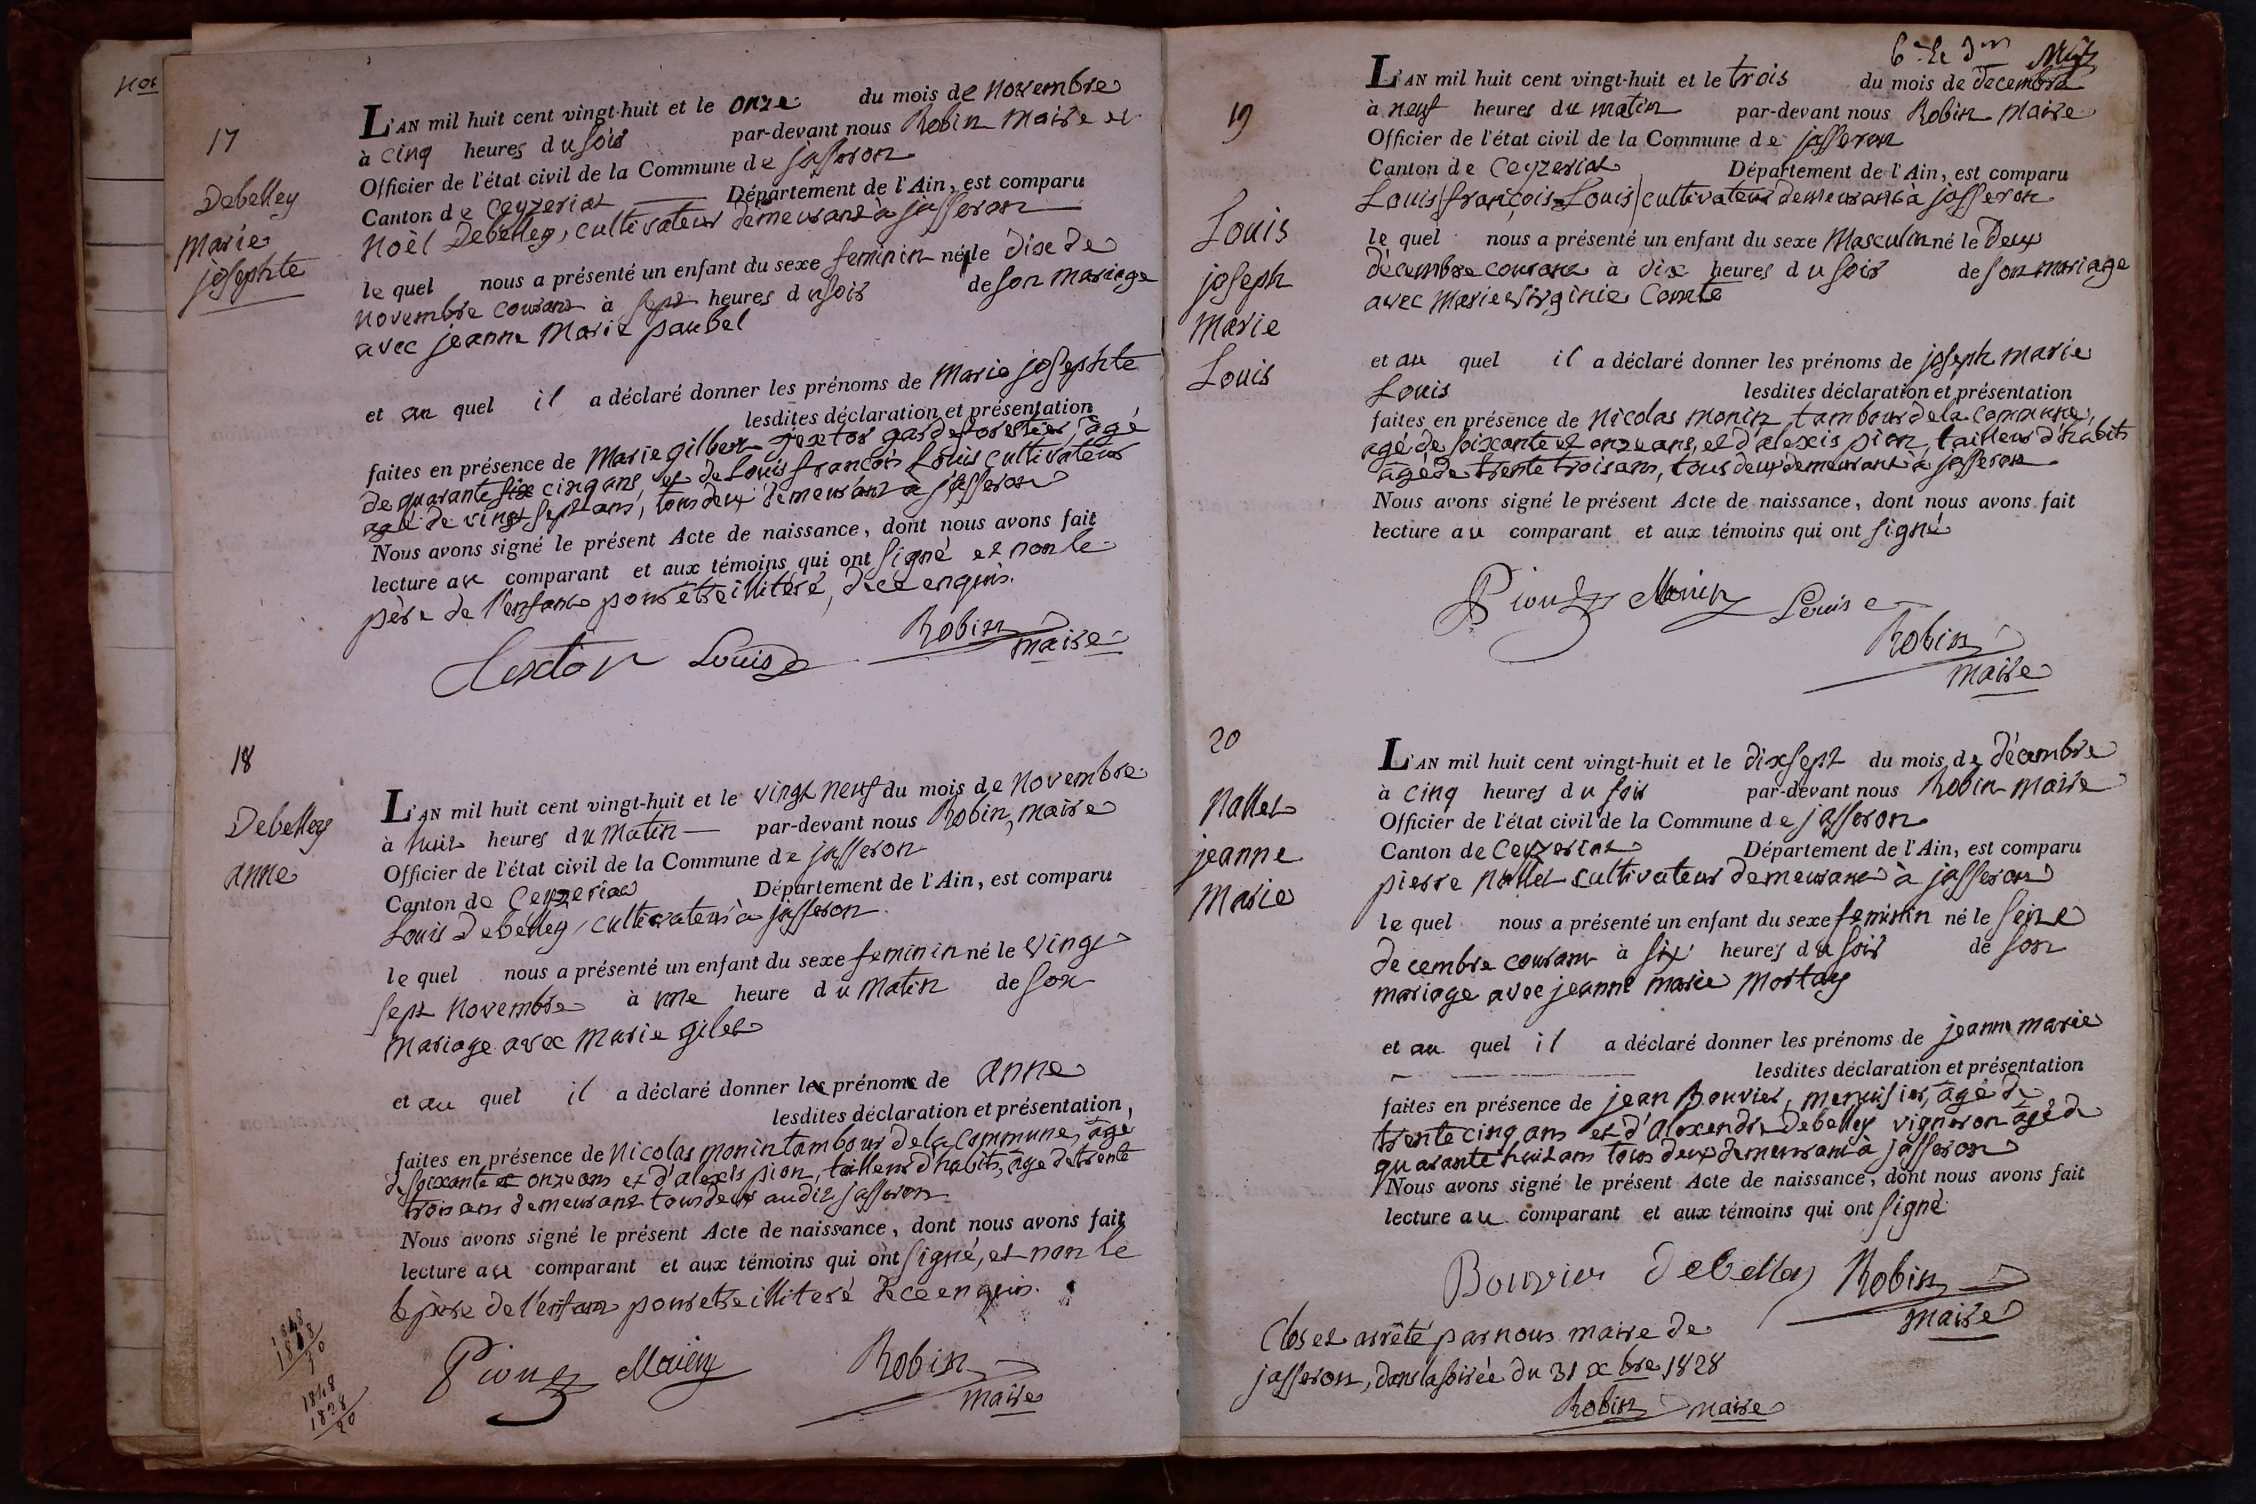 17
Debelley
Marie
josephte
L'AN mil huit cent vingt-huit et le onze du mois de novembre
à cinq heures du soir par-devant nous Robin Maire et
Officier de l'état civil de la Commune de jasseron
Canton de Ceyzeriat Département de l'Ain, est comparu
Noèl Debelley, cultivateur demeurant à jasseron
le quel nous a présenté un enfant du sexe feminin né le dix de
novembre courant à sept heures du soir de son mariage
avec jeanne Marie paubel
et au quel il a déclaré donner les prénoms de Marie josephte
lesdites déclaration et présentation
faites en présence de Marie gilbert textor garde forestier, âgé
de quarante six cinq ans et de Louis françois Louis cultivateur
agé de vingt sept ans, tous deux demeurant à jasseron
Nous avons signé le présent Acte de naissance, dont nous avons fait
lecture au comparant et aux témoins qui ont signé et non le
père de l'enfant pour etre illiteré, de ce enquis.
textor Louis Robin
maire
18
Debelley
anne
L'AN mil huit cent vingt-huit et le vingt neuf du mois de Novembre
à huit heures du Matin par-devant nous Robin, maire
Officier de l'état civil de la Commune de jasseron
Canton de Ceyzeriat Département de l'Ain, est comparu
Louis Debelley, cultivateur à jasseron
le quel nous a présenté un enfant du sexe feminin né le vingt
sept Novembre à une heure du Matin de son
Mariage avec Marie gilet
et au quel il a déclaré donner les prénoms de anne
lesdites déclaration et présentation,
faites en présence de Nicolas monin tambour de la commune, âgé
de soixante et onze ans et d'alexis pion, tailleur d'habits, âgé de trente
trois ans demeurant tous deux audit jasseron
Nous avons signé le présent Acte de naissance, dont nous avons fait
lecture au comparant et aux témoins qui ont signé, et non le
le père de l'enfant pour etre illiteré de ce enquis.
Pion Monin Robin
maire
1848
1828
20
1848
1828
20
19
Louis
joseph
Marie
Louis
L'AN mil huit cent vingt-huit et le trois du mois de decembre
à neuf heures du matin par-devant nous Robin Maire
Officier de l'état civil de la Commune de jasseron
Canton de Ceyzeriat Département de l'Ain, est comparu
Louis (françois Louis) cultivateur demeurant à jasseron
le quel nous a présenté un enfant du sexe Masculin né le Deux
décembre courant à dix heures du soir de son mariage
avec Marie Virginie Comte
et au quel il a déclaré donner les prénoms de joseph marie
Louis lesdites déclaration et présentation
faites en présence de Nicolas monin tambour de la commune,
agé de soixante et onze ans, et d'alexis pion, tailleur d'habits
âgé de trente trois ans, tous deux demeurant à jasseron
Nous avons signé le présent Acte de naissance, dont nous avons fait
lecture au comparant et aux témoins qui ont signé
Pion Monin Louis
Robin
maire
20
Nallet
jeanne
Marie
L'AN mil huit cent vingt-huit et le dix sept du mois de décembre
à cinq heures du soir par-devant nous Robin Maire
Officier de l'état civil de la Commune de jasseron
Canton de Ceyzeriat Département de l'Ain, est comparu
pierre Nallet cultivateur demeurant à jasseron
le quel nous a présenté un enfant du sexe feminin né le seize
decembre courant à six heures du soir de son
mariage avec jeanne marie Mortay
et au quel il a déclaré donner les prénoms de jeanne marie
lesdites déclaration et présentation
faites en présence de jean Bouvier, menuisier, âgé de
trente cinq ans et d'alexandre Debelley vigneron âgé de
quarante huit ans tous deux demeurant à jasseron
Nous avons signé le présent Acte de naissance, dont nous avons fait
lecture au comparant et aux témoins qui ont signé
Bouvier debelley Robin
maire
Clos et arrêté par nous maire de
jasseron, dans la soirée du 31 xbre 1828
Robin maire